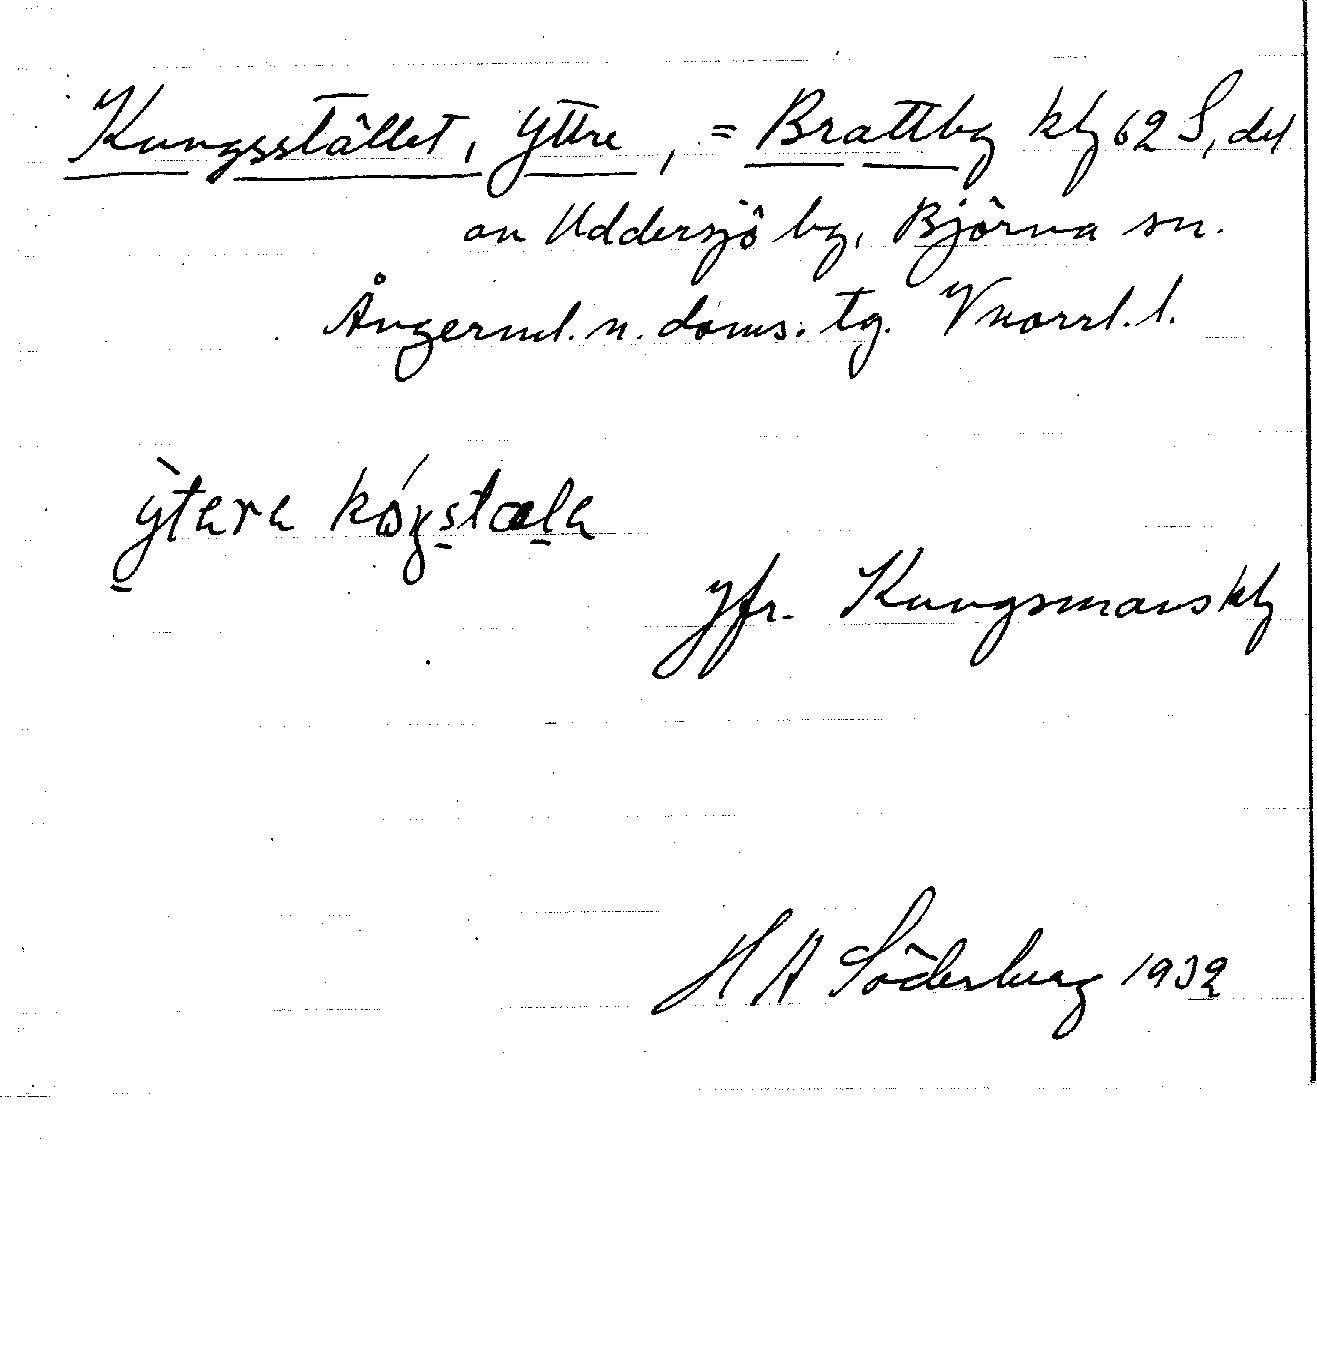 Kungsstället, Yttre, = Brattby kb 62 S, del
av Uddersjö by, Björna sn.
Ångerml. n. doms. tg. Vnorrl. l.
ỳtere kóŋstæle
Jfr. Kungsmanskb
H A Söderberg 1932